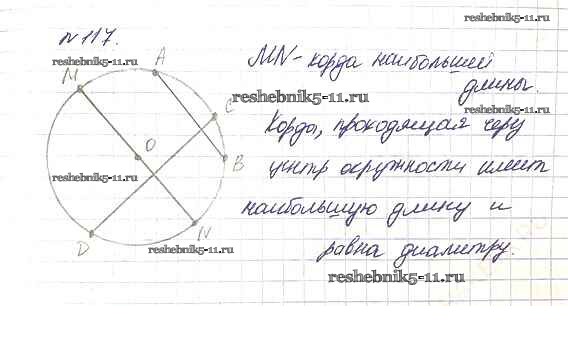 reshebnik5-11.ru
№117.
MN - хорда наибольшей
reshebnik5-11.ru
A
M
длины.
reshebnik5-11.ru
reshebnik5-11.ru
C
Хорда, проходящая через
O
B
центр окружности имеет
reshebnik5-11.ru
наибольшую длину и
N
D
reshebnik5-11.ru
равна диаметру.
reshebnik5-11.ru